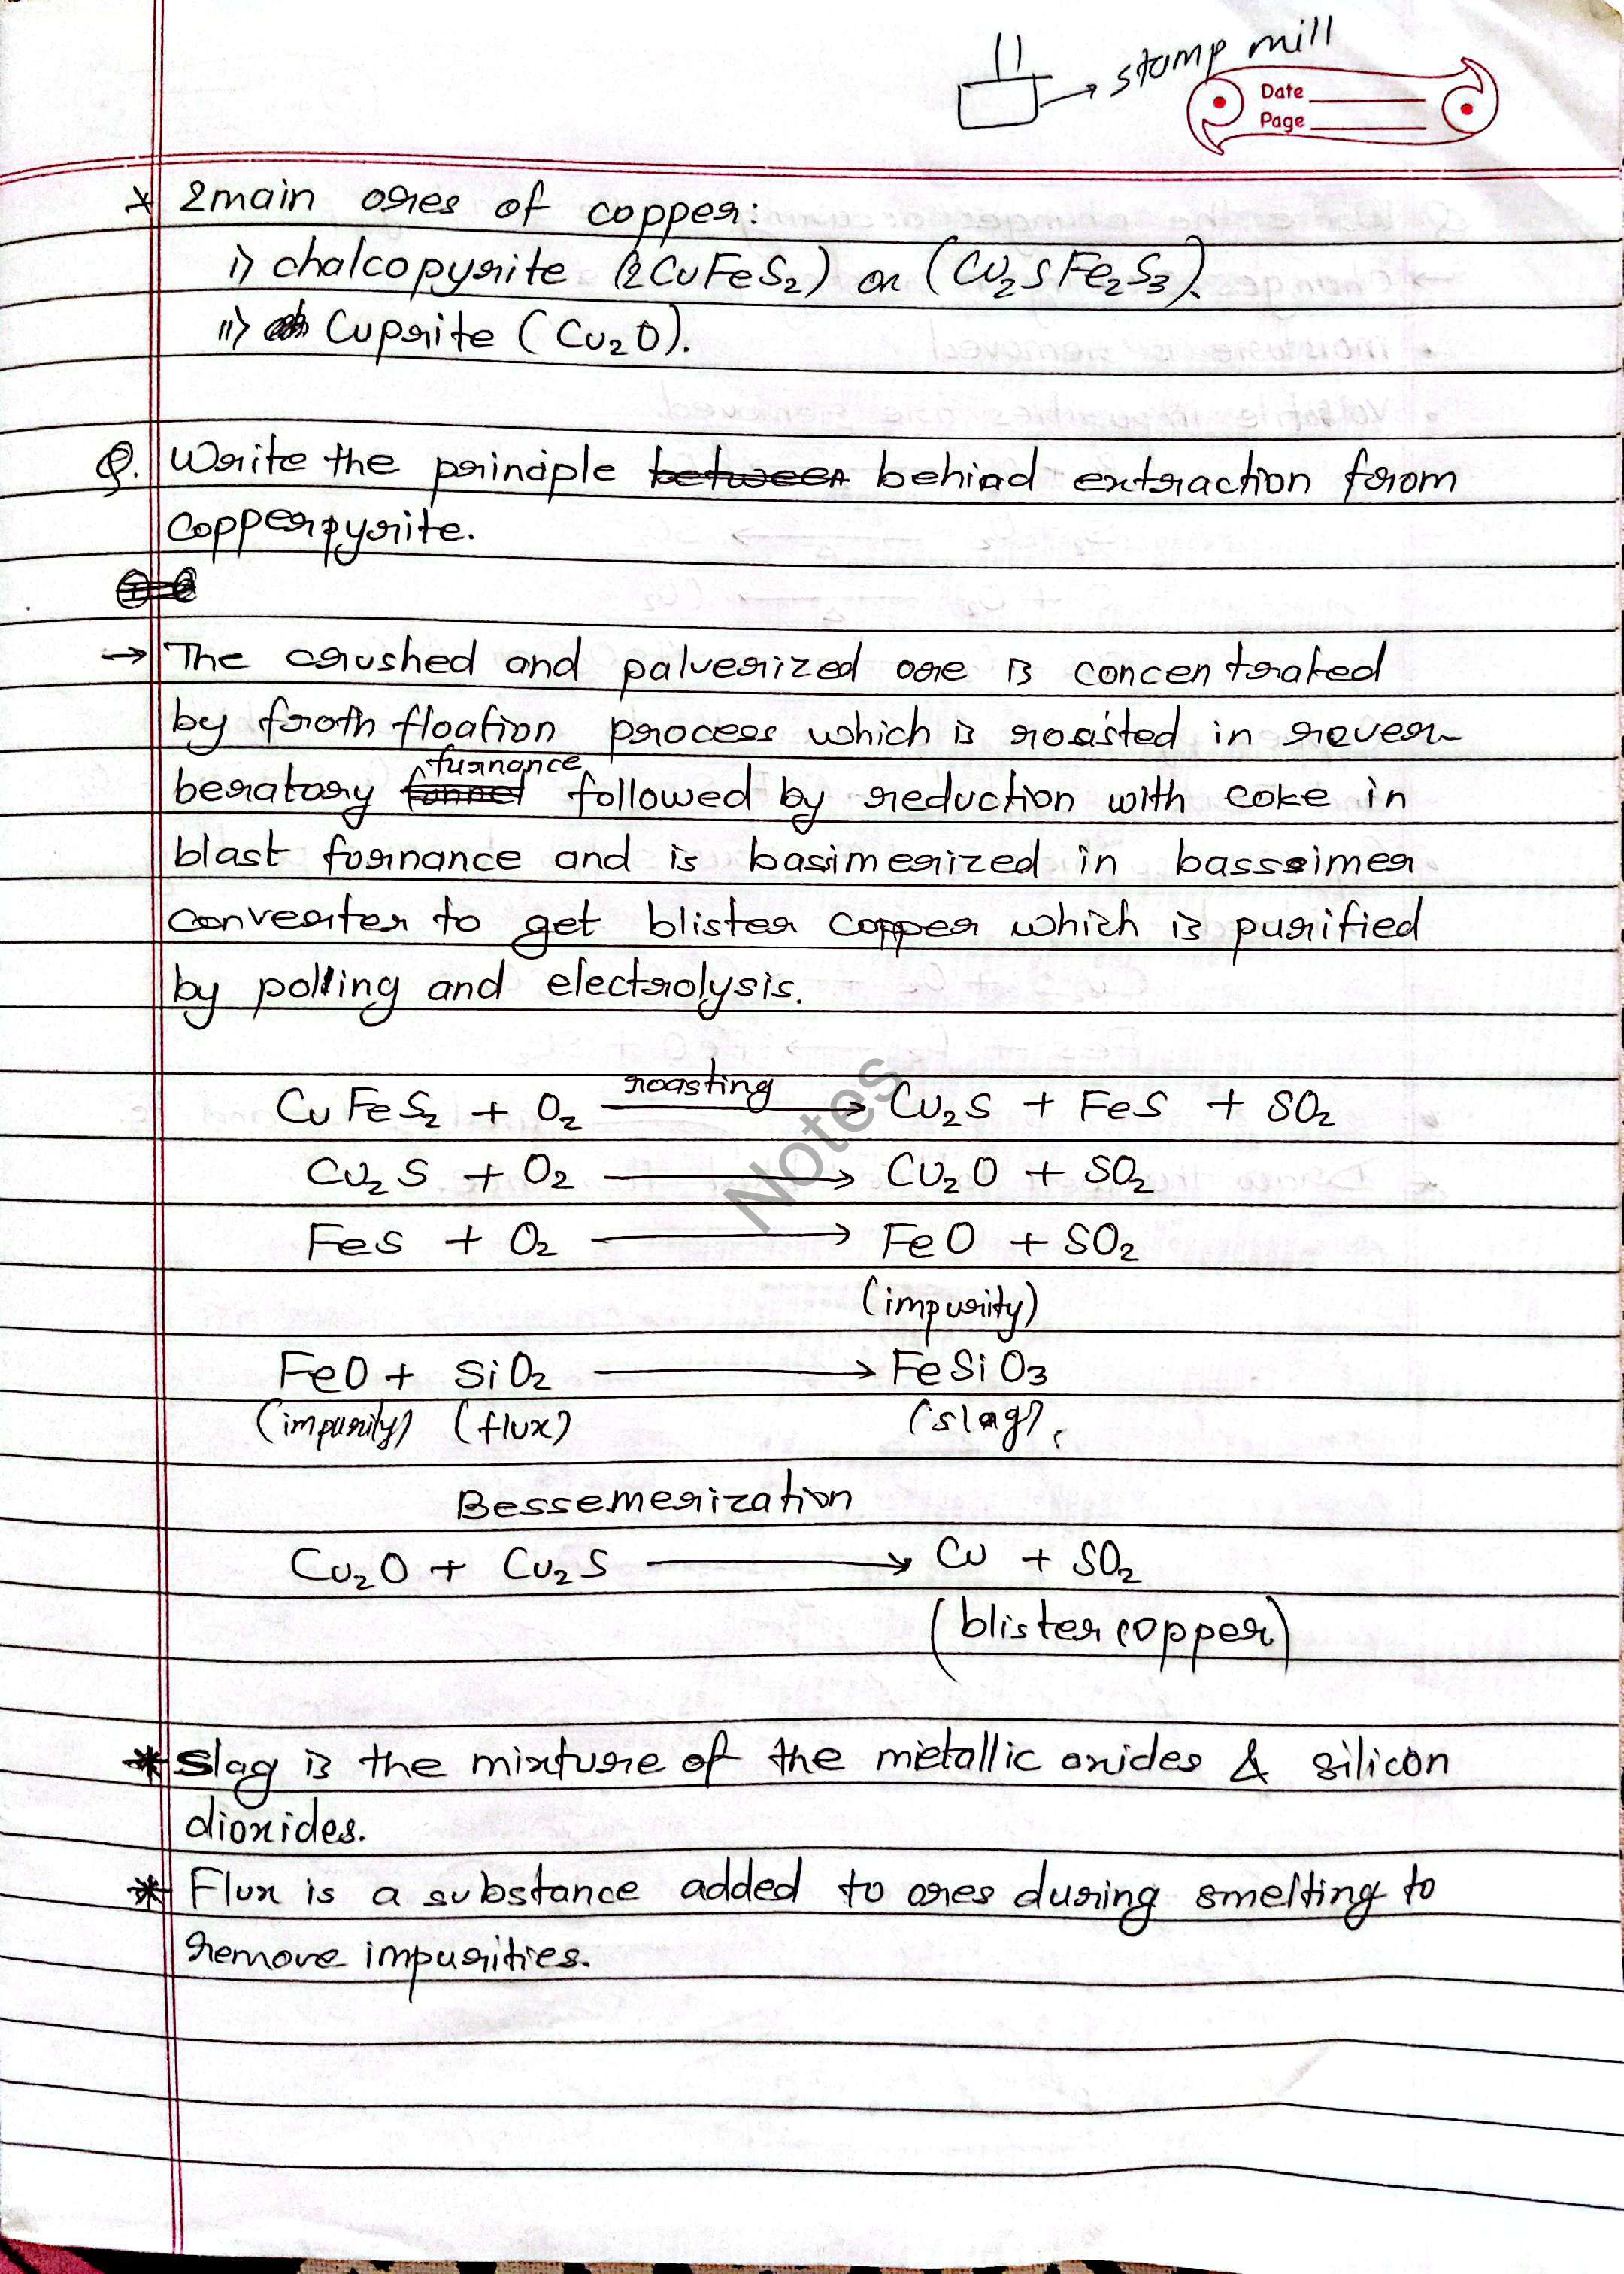 stamp mill
Date
Page
* 2main ores of copper:
i) chalcopyrite (2CuFeS₂) or (Cu₂SFe₂S₃).
ii) Cuprite (Cu₂O).
Q. Write the principle between behind extraction from
Copperpyrite.
→ The crushed and palverized ore is concentrated
by froth floation process which is roasted in rever-
furnance
beratory funnel followed by reduction with coke in
blast furnance and is basimerized in basssimer
converter to get blister copper which is purified
by polling and electrolysis.
CuFeS₂ + O₂ roasting → Cu₂S + FeS + SO₂
Cu₂S + O₂ → Cu₂O + SO₂
FeS + O₂ → FeO + SO₂
(impurity)
FeO + SiO₂ → FeSiO₃
(impurity) (flux) (slag)
Bessemerization
Cu₂O + Cu₂S → Cu + SO₂
(blister copper)
* Slag is the mixture of the metallic oxides & silicon
dioxides.
* Flux is a substance added to ores during smelting to
remove impurities.
Notes